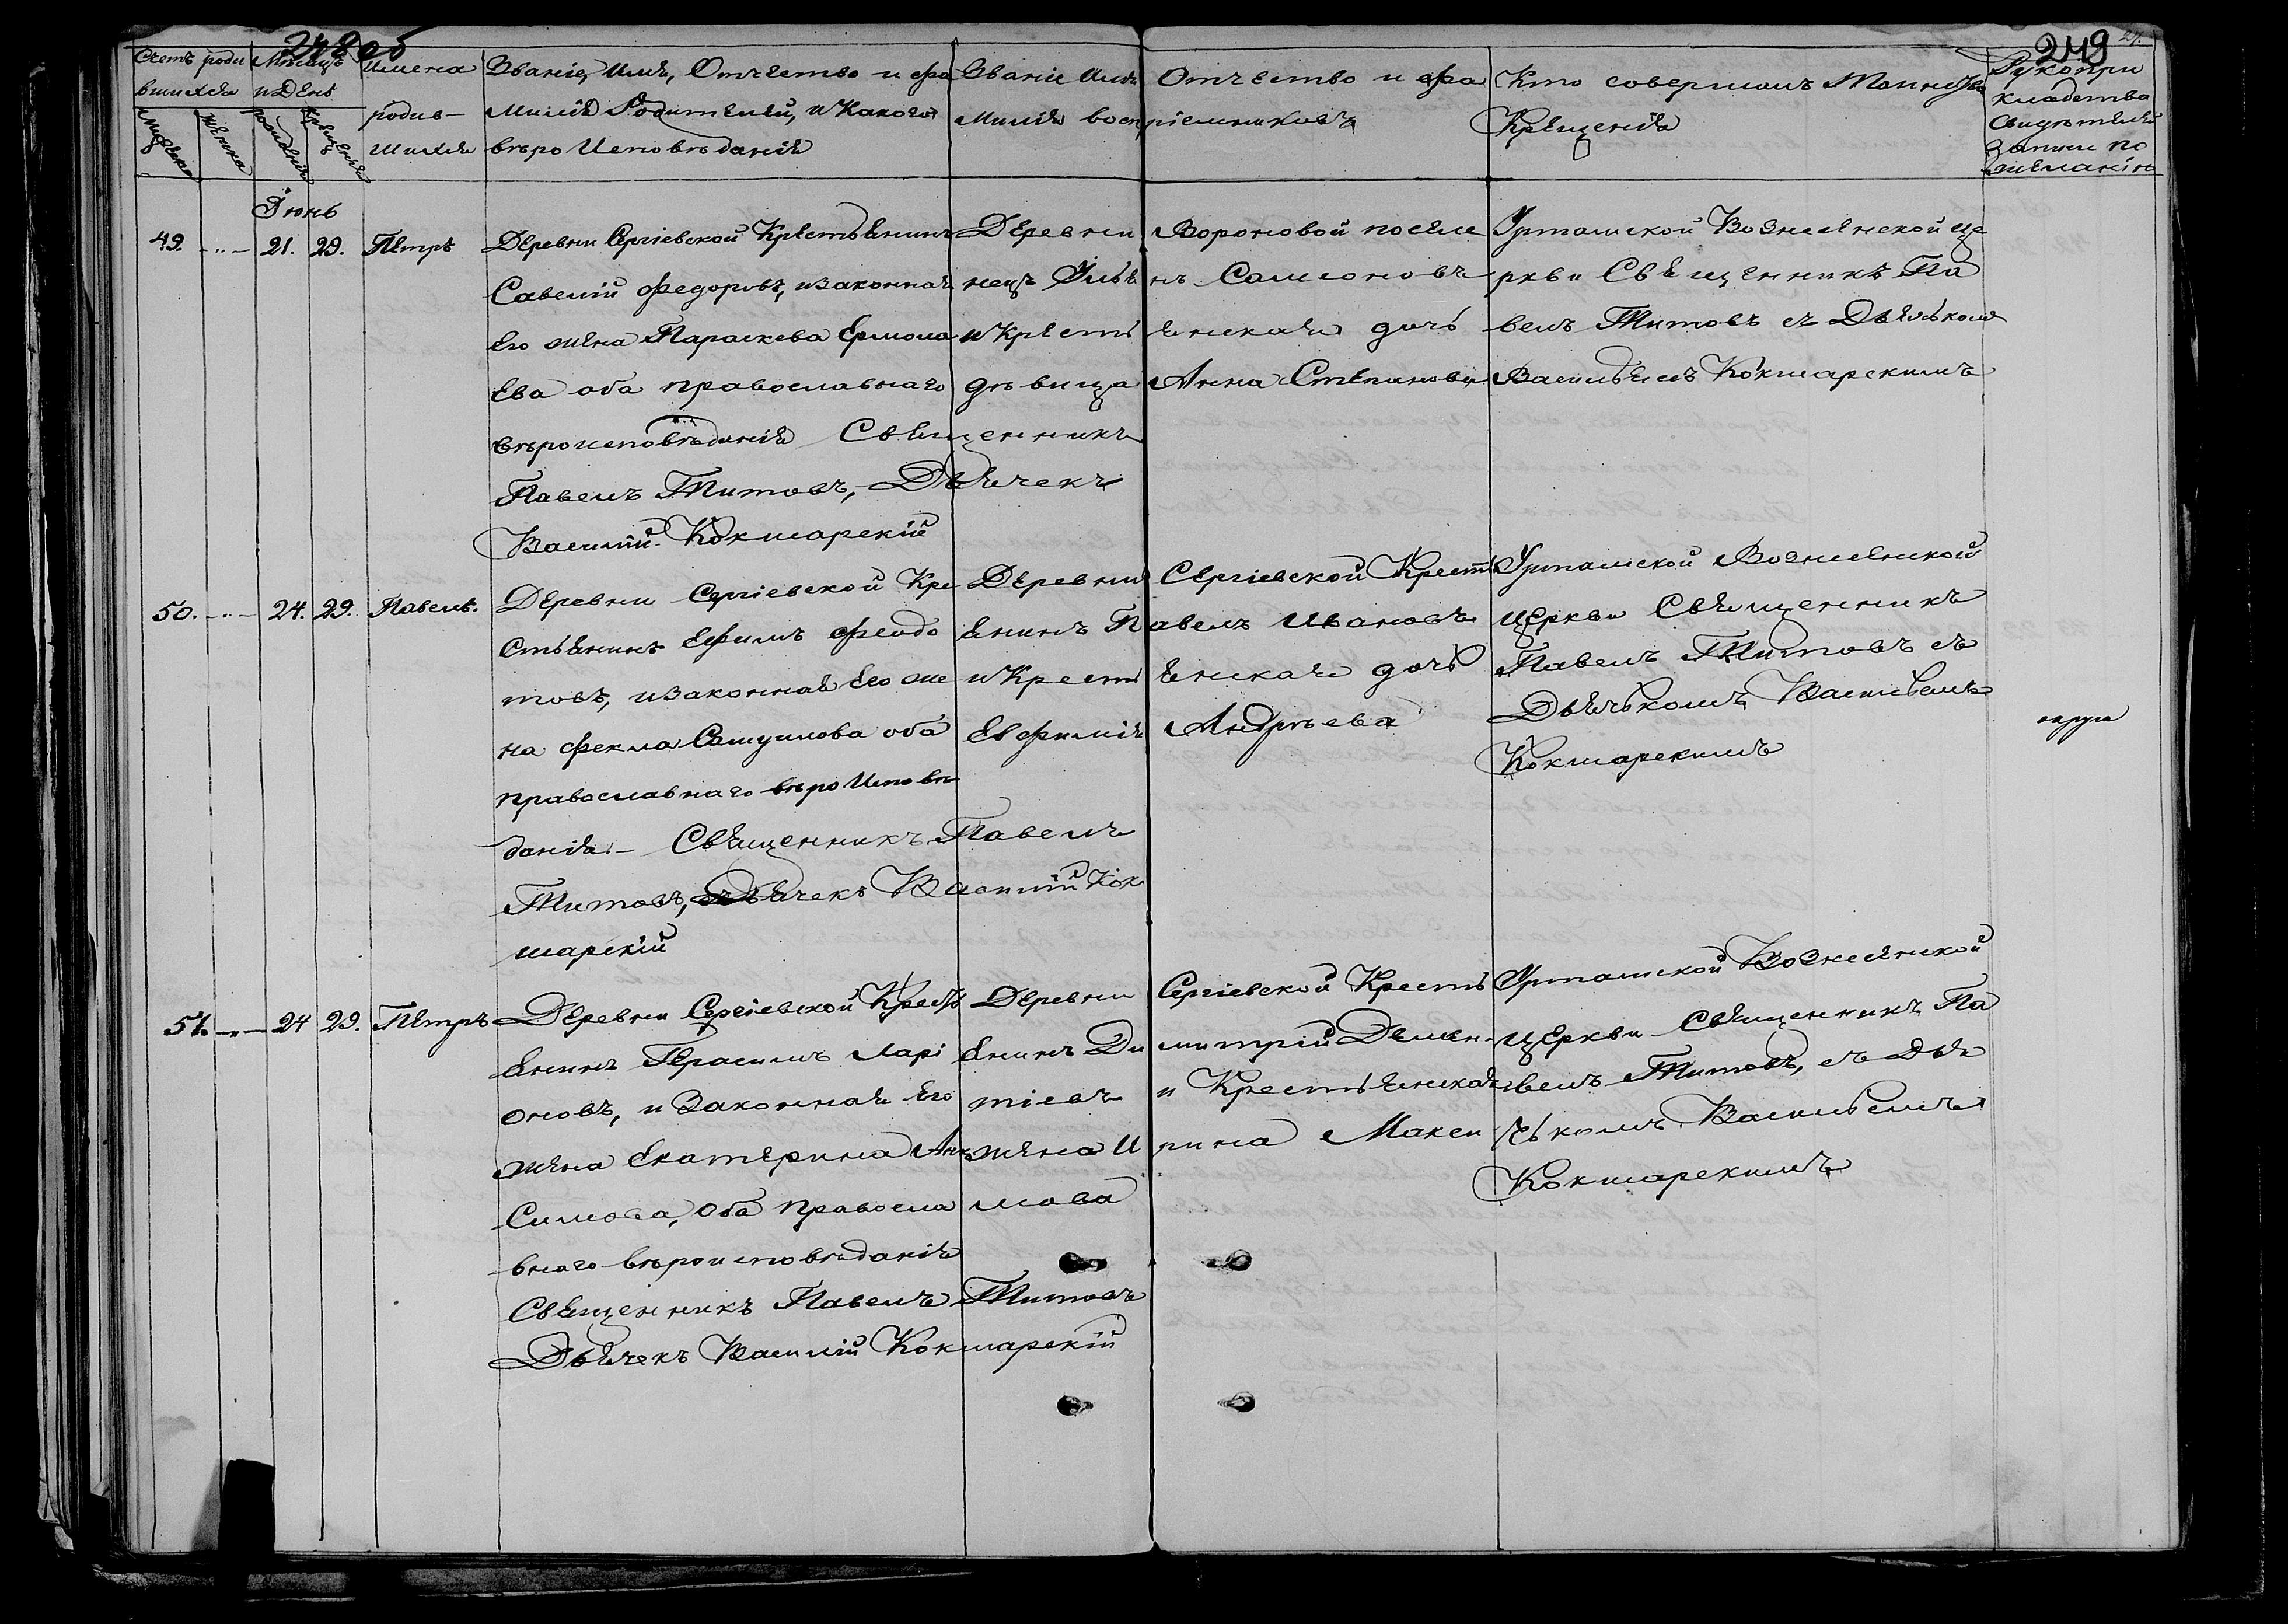 248 об
249
27.
Счетъ роди
вшихся
Мѣсяцъ
и День
мужеска
женска
рожденія
крещенія
Имена
родив-
шихся
Званіе, Имя, Отчество и фа
милія Родителей, и Какого
вѣро Исповѣданія
Званіе Имя Отчество и фа
милія воспріемниковъ
Кто совершалъ Таинство
Крещенія
Рукопри
кладства
Свидѣтелей
записи по
желанію
Іюнь
49. -..- 21. 29. Петръ
Деревни Сергіевской Крестьянинъ
Савелій Федоровъ, и законная
Его жена Параскева Ермола
Ева оба православнаго
вѣроисповѣданія Священникъ
Павелъ Титовъ, Дьячекъ
Василій Кокшарскій
Деревни Вороновой поселе
нецъ Илья нъ Самсоновъ
и Крестьянская дочь
дѣвица Анна Степанова
Урташской Вознесенской це
ркви Священникъ Па
велъ Титовъ съ Дьячькомъ
Васильемъ Кокшарскимъ
50. -..- 24. 29. Павелъ.
Деревни Сергіевской Кре
стьянинъ Ефимъ Феодо
товъ, и законная Его же
на Фекла Самуилова оба
православнаго вѣро Исповѣ
данія. - Священникъ Павелъ
Титовъ, Дьячекъ Василій Кок
шарскій
Деревни Сергіевской Кресть
янинъ Павелъ Ивановъ
и Крестьянская дочь
Евфимія Андрѣева
Урташской Вознесенской
церкви Священникъ
Павелъ Титовъ съ
Дьячькомъ Васильемъ
Кокшарскимъ
округа
51. -..- 24 29. Петръ
Деревни Сергіевской Кресть
янинъ Герасимъ Ларі
оновъ, и Законная Его
жена Екатерина Ани
Симова, Оба Правосла
внаго вѣроисповѣданія
Священникъ Павелъ Титовъ
Дьячекъ Василій Кокшарскій
Деревни Сергіевской Кресть
янинъ Димитрій Демен-
тіевъ и Крестьянская
жена Ирина Макси
мова
Урташской Вознесенской
церкви Священникъ Па
велъ Титовъ, съ Дья
чькомъ Васильемъ
Кокшарскимъ